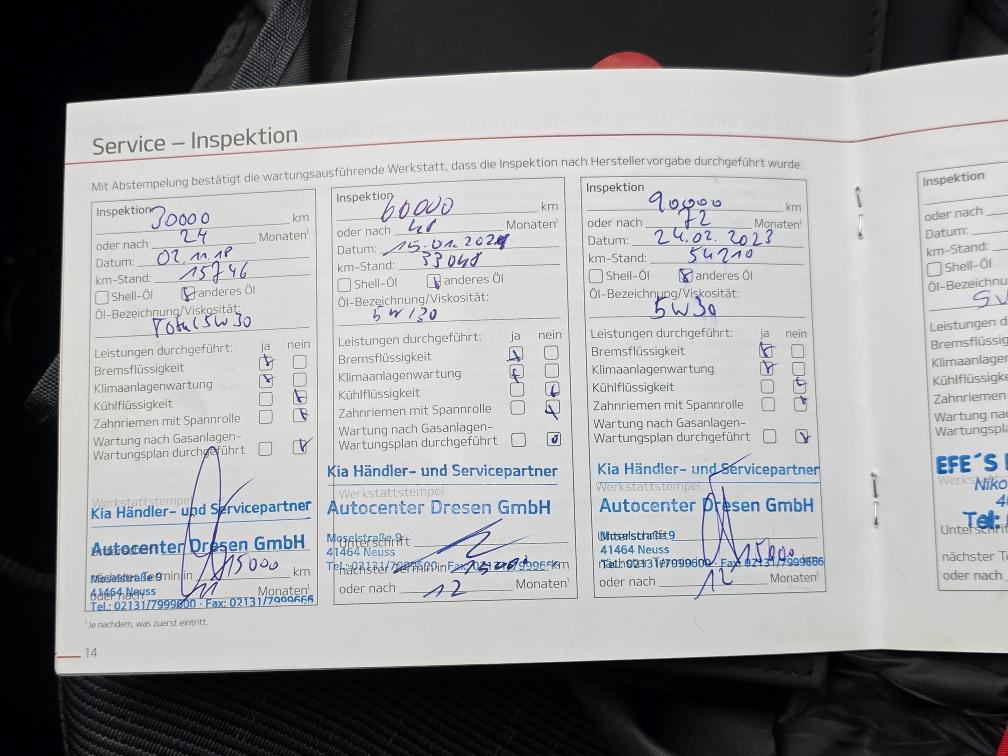 Service – Inspektion
Mit Abstempelung bestätigt die wartungsausführende Werkstatt, dass die Inspektion nach Herstellervorgabe durchgeführt wurde.
Inspektion 30000 km
oder nach 24 Monaten¹
Datum: 02.11.18
km-Stand: 15746
Shell-Öl anderes Öl
Öl-Bezeichnung/Viskosität:
Total 5W30
Leistungen durchgeführt: ja nein
Bremsflüssigkeit
Klimaanlagenwartung
Kühlflüssigkeit
Zahnriemen mit Spannrolle
Wartung nach Gasanlagen-
Wartungsplan durchgeführt
Werkstattstempel
Kia Händler- und Servicepartner
Autocenter Dresen GmbH
15000 km
Moselstraße 9
41464 Neuss
oder nach Monaten¹
Tel.: 02131/7999600 · Fax: 02131/7999666
¹Je nachdem, was zuerst eintritt.
14
Inspektion 60000 km
oder nach 48 Monaten¹
Datum: 15.01.2021
km-Stand: 33048
Shell-Öl anderes Öl
Öl-Bezeichnung/Viskosität:
5W/30
Leistungen durchgeführt: ja nein
Bremsflüssigkeit
Klimaanlagenwartung
Kühlflüssigkeit
Zahnriemen mit Spannrolle
Wartung nach Gasanlagen-
Wartungsplan durchgeführt
Kia Händler- und Servicepartner
Werkstattstempel
Autocenter Dresen GmbH
Moselstraße 9
Unterschrift
41464 Neuss
nächster Termin in km
oder nach 12 Monaten¹
Inspektion 90000 km
oder nach 72 Monaten¹
Datum: 24.02.2023
km-Stand: 54210
Shell-Öl anderes Öl
Öl-Bezeichnung/Viskosität:
5W30
Leistungen durchgeführt: ja nein
Bremsflüssigkeit
Klimaanlagenwartung
Kühlflüssigkeit
Zahnriemen mit Spannrolle
Wartung nach Gasanlagen-
Wartungsplan durchgeführt
Kia Händler- und Servicepartner
Werkstattstempel
Autocenter Dresen GmbH
41464 Neuss
15000
Tel.: 02131/7999600 · Fax: 02131/7999666
oder nach 12 Monaten¹
Inspektion
oder nach
Datum:
km-Stand:
Shell-Öl
Öl-Bezeichn
Leistungen
Bremsflüssig
Klimaanlage
Kühlflüssigk
Zahnriemen
Wartung nac
Wartungspla
EFE´S
Niko
Tel:
Unterschrif
nächster Te
oder nach